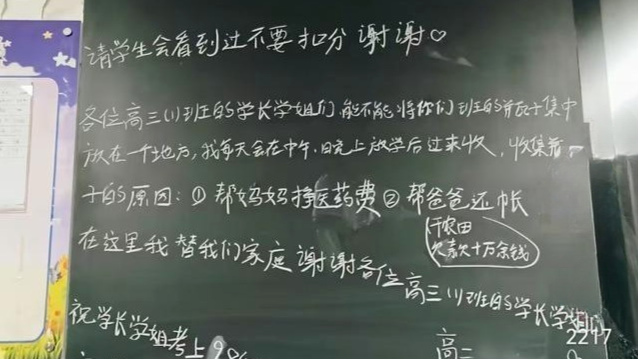 请学生会看到过不要扣分 谢谢♡
各位高三(1)班的学长学姐们,能不能将你们班的瓶子集中
放在一个地方,我每天会在中午、晚上放学后过来收,收集瓶
子的原因:① 帮妈妈挣医药费 ② 帮爸爸还帐
干农田
欠款十万余钱
在这里我替我们家庭谢谢各位高三(1)班的学长学姐们
祝学长学姐考上985
高二
2217